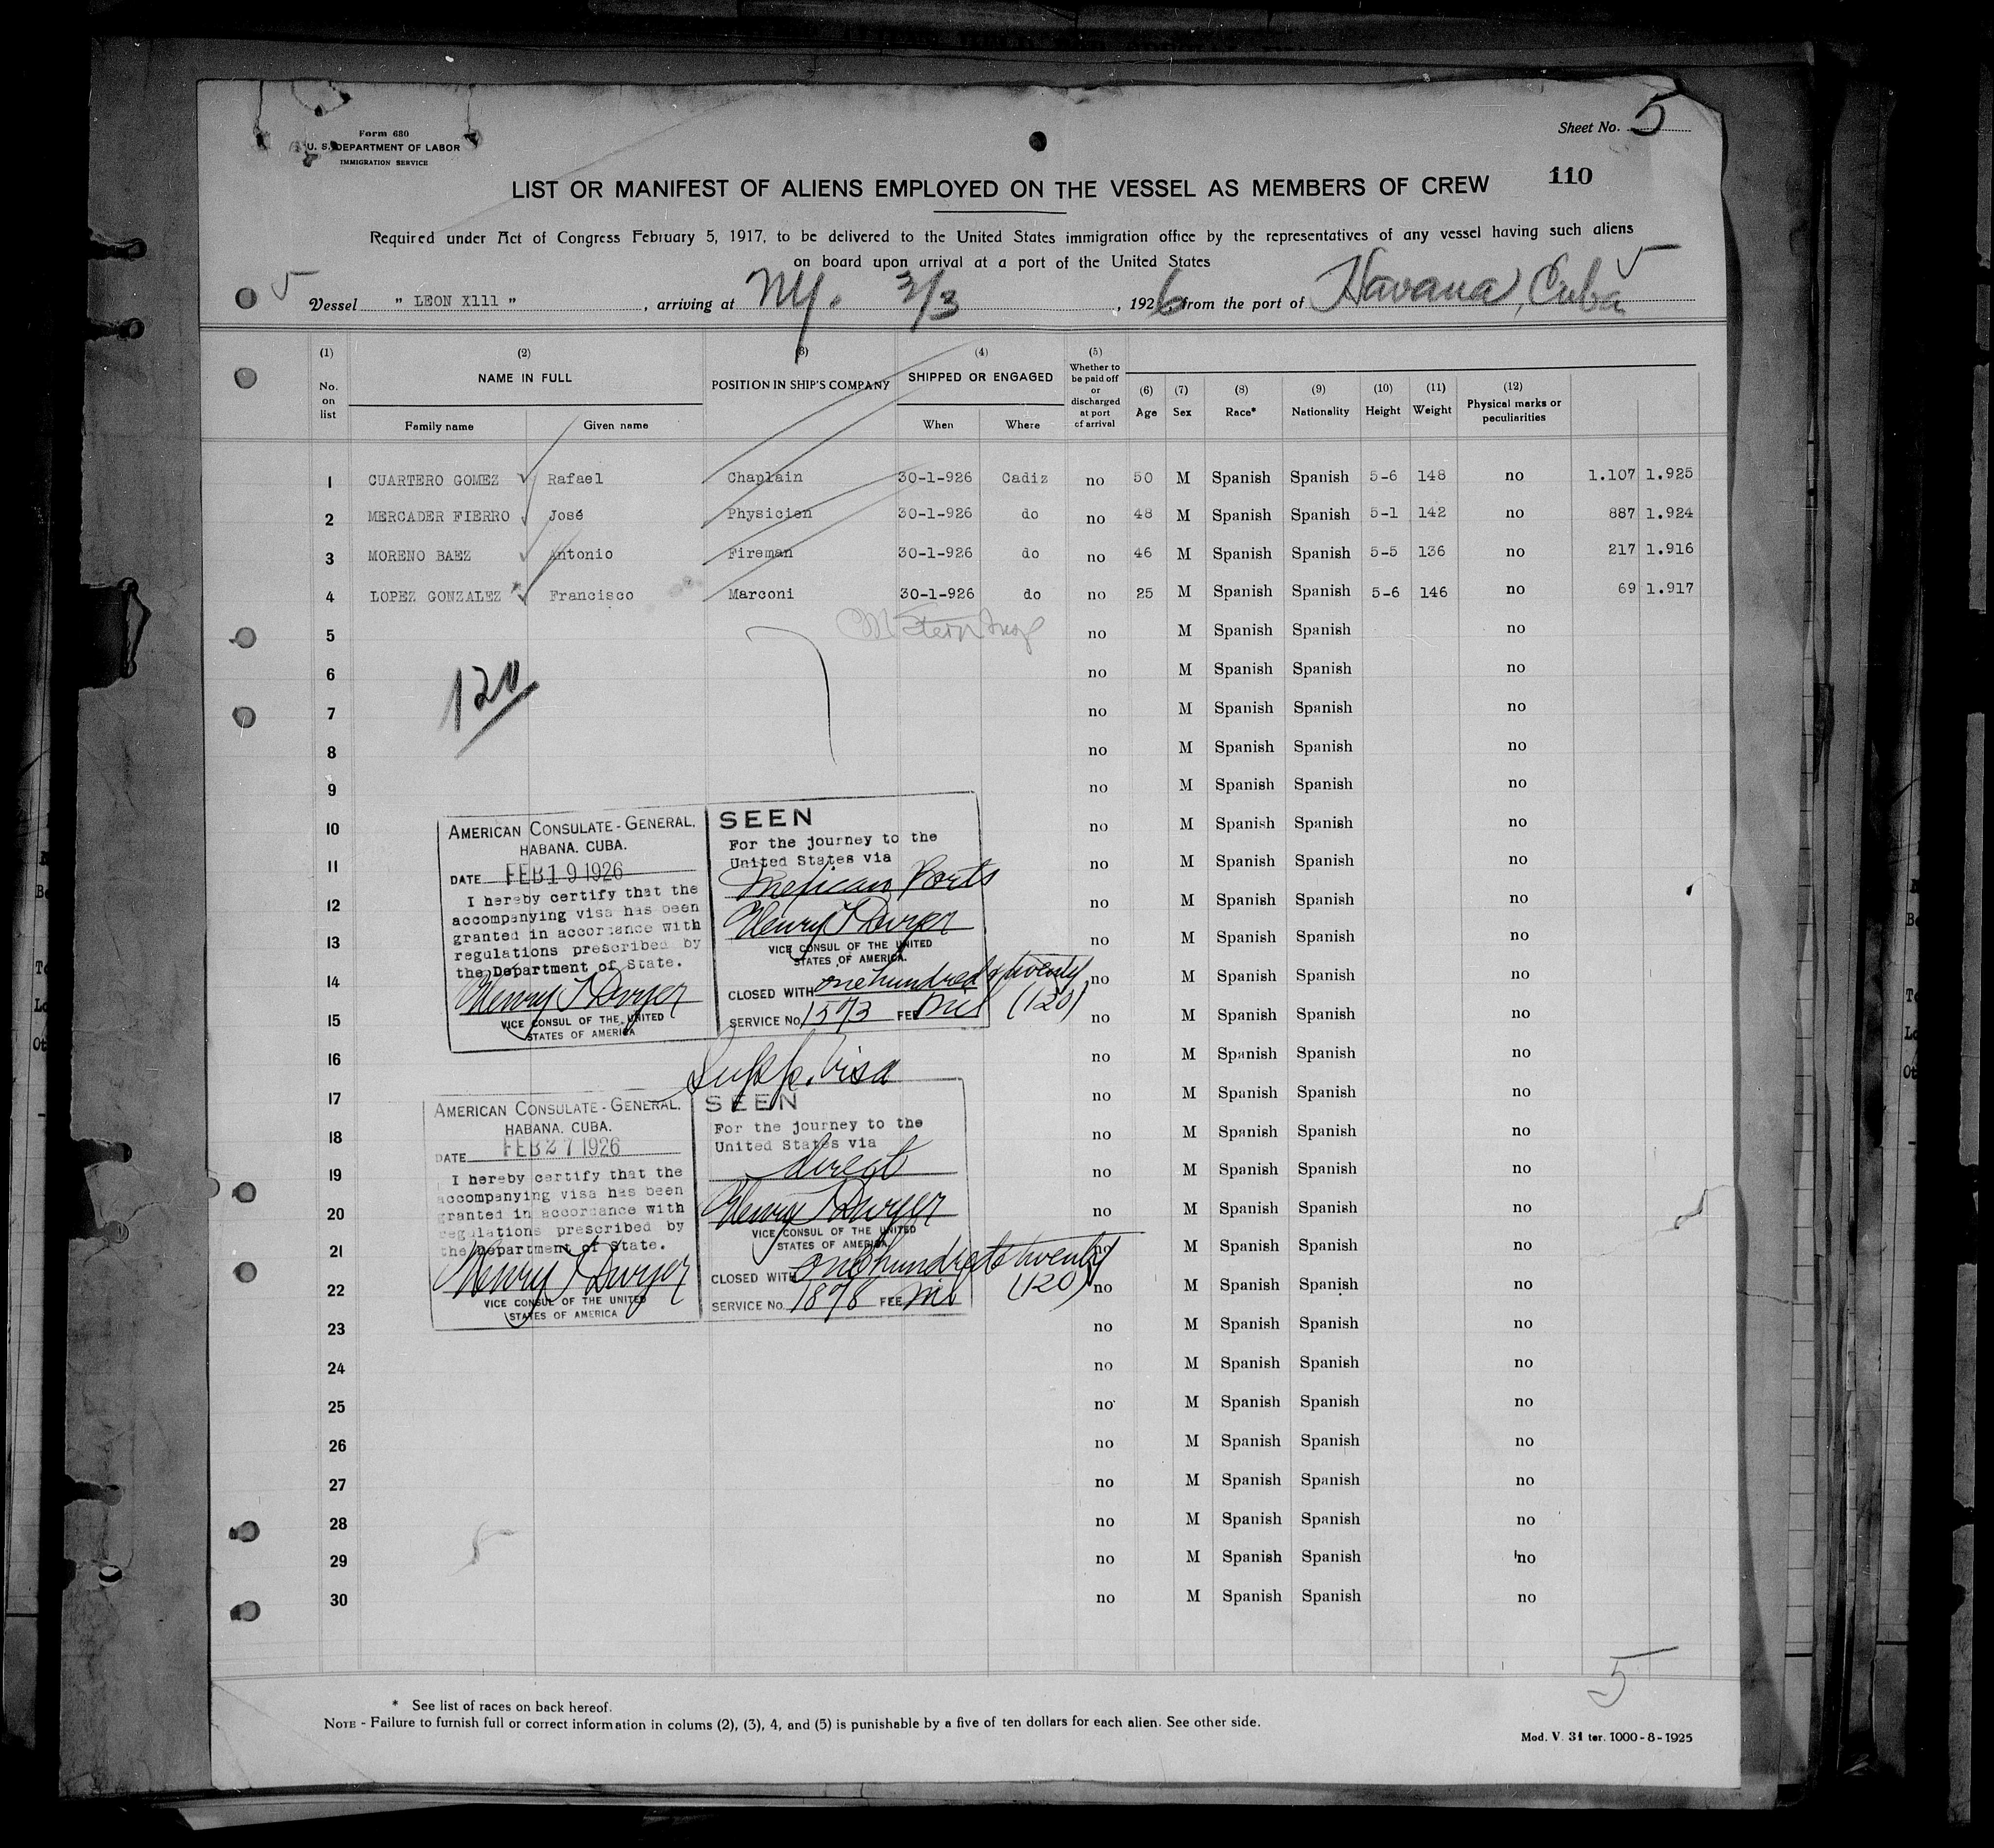 Form 680
U. S. DEPARTMENT OF LABOR
IMMIGRATION SERVICE
Sheet No. 5
110
LIST OR MANIFEST OF ALIENS EMPLOYED ON THE VESSEL AS MEMBERS OF CREW
Required under Act of Congress February 5, 1917, to be delivered to the United States immigration office by the representatives of any vessel having such aliens
on board upon arrival at a port of the United States
5 Vessel " LEON X111 " , arriving at NY. 3/3 , 1926 from the port of Havana, Cuba 5
(1) (2) (3) (4) (5)
No. on list NAME IN FULL POSITION IN SHIP'S COMPANY SHIPPED OR ENGAGED Whether to be paid off or discharged at port of arrival (6) Age (7) Sex (8) Race* (9) Nationality (10) Height (11) Weight (12) Physical marks or peculiarities
Family name Given name When Where
1 CUARTERO GOMEZ Rafael Chaplain 30-1-926 Cadiz no 50 M Spanish Spanish 5-6 148 no 1.107 1.925
2 MERCADER FIERRO José Physicien 30-1-926 do no 48 M Spanish Spanish 5-1 142 no 887 1.924
3 MORENO BAEZ Antonio Fireman 30-1-926 do no 46 M Spanish Spanish 5-5 136 no 217 1.916
4 LOPEZ GONZALEZ Francisco Marconi 30-1-926 do no 25 M Spanish Spanish 5-6 146 no 69 1.917
5 no M Spanish Spanish no
6 no M Spanish Spanish no
120
7 no M Spanish Spanish no
8 no M Spanish Spanish no
9 no M Spanish Spanish no
10 no M Spanish Spanish no
11 no M Spanish Spanish no
12 no M Spanish Spanish no
13 no M Spanish Spanish no
14 no M Spanish Spanish no
15 no M Spanish Spanish no
16 no M Spanish Spanish no
17 no M Spanish Spanish no
18 no M Spanish Spanish no
19 no M Spanish Spanish no
20 no M Spanish Spanish no
21 no M Spanish Spanish no
22 no M Spanish Spanish no
23 no M Spanish Spanish no
24 no M Spanish Spanish no
25 no M Spanish Spanish no
26 no M Spanish Spanish no
27 no M Spanish Spanish no
28 no M Spanish Spanish no
29 no M Spanish Spanish no
30 no M Spanish Spanish no
AMERICAN CONSULATE-GENERAL.
HABANA. CUBA.
DATE FEB 19 1926
I hereby certify that the
accompanying visa has been
granted in accordance with
regulations prescribed by
the Department of State.
Henry T Dwyer
VICE CONSUL OF THE UNITED
STATES OF AMERICA
SEEN
For the journey to the
United States via
Mexican Ports
Henry T Dwyer
VICE CONSUL OF THE UNITED
STATES OF AMERICA.
CLOSED WITH one hundred & twenty
SERVICE No. 1573 FEE Nil (120)
Supp. Visa
AMERICAN CONSULATE-GENERAL.
HABANA. CUBA.
DATE FEB 27 1926
I hereby certify that the
accompanying visa has been
granted in accordance with
regulations prescribed by
the Department of State.
Henry T Dwyer
VICE CONSUL OF THE UNITED
STATES OF AMERICA
SEEN
For the journey to the
United States via
direct
Henry T Dwyer
VICE CONSUL OF THE UNITED
STATES OF AMERICA
CLOSED WITH one hundred & twenty
SERVICE No. 1878 FEE Nil (120)
5
* See list of races on back hereof.
NOTE - Failure to furnish full or correct information in colums (2), (3), 4, and (5) is punishable by a five of ten dollars for each alien. See other side.
Mod. V. 31 ter. 1000-8-1925